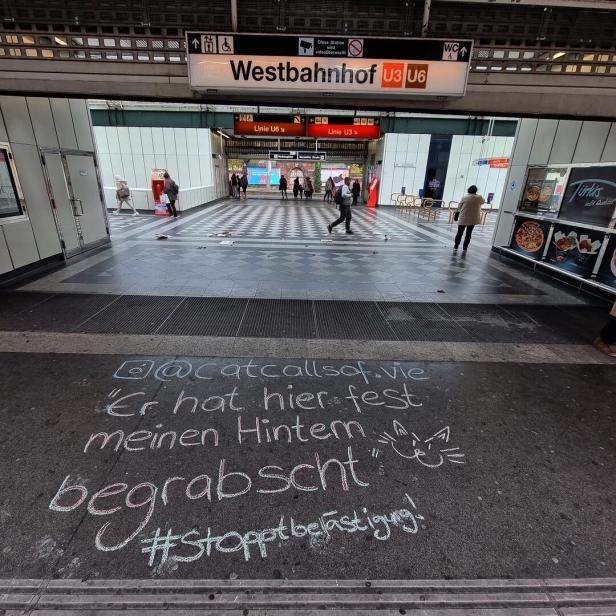 Diese Station wird videoüberwacht
WC
Westbahnhof U3 U6
Linie U6
Linie U3
@catcallsof.vie
"Er hat hier fest
meinen Hintern
begrabscht"
#stopptbelästigung!